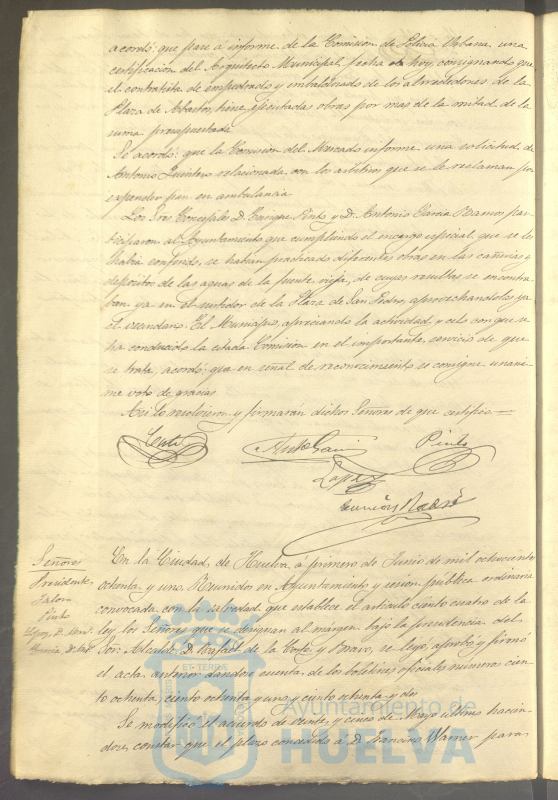 acordó: que pase á informe de la Comision de Policia Urbana una
certificacion del Arquitecto Municipal, fecha de hoy, consignando que
el contratista de empedrado y embaldosado de los alrededores de la
Plaza de Abastos, tiene ejecutadas obras por mas de la mitad de la
suma presupuestada
Se acordó: que la Comision del Mercado informe una solicitud de
Antonio Quintero relacionada con los arbitrios que se le reclaman por
expender pan en ambulancia
Los Sres Concejales D. Enrique Pinto y D. Antonio Garcia Ramos par-
ticiparon al Ayuntamiento que cumpliendo el encargo especial que se les
habia conferido, se habian practicado diferentes obras en las cañerias y
depositos de las aguas de la fuente vieja, de cuyas resultas se encontra-
ban ya en el surtidor de la Plaza de San Pedro, aprovechandolas ya
el vecindario. El Municipio, apreciando la actividad y celo con que se
ha conducido la citada Comision en el importante servicio de que
se trata, acordó: que en señal de reconocimiento se consigne unani-
me voto de gracias
Asi lo resolvieron y firmarán dichos Señores de que certifico =
Pinto
Lopez
Señores
Presidente
Pinto
En la Ciudad de Huelva á primero de Junio de mil ochocientos
ochenta y uno. Reunidos en Ayuntamiento y sesion publica ordinaria
convocada con la brevedad que establece el articulo ciento cuatro de la
ley, los Señores que se designan al margen bajo la presidencia del
Sor. Alcalde D. Rafael de la Corte y Bravo, se leyó, aprobó y firmó
el acta anterior dandose cuenta de los boletines oficiales numeros cien-
to ochenta, ciento ochenta y uno y ciento ochenta y dos
Se modificó el acuerdo de veinte y cinco de Mayo ultimo hacien-
dose constar que el plazo concedido á D. Francisco Warner para
ET TERRÆ
Ayuntamiento de
HUELVA